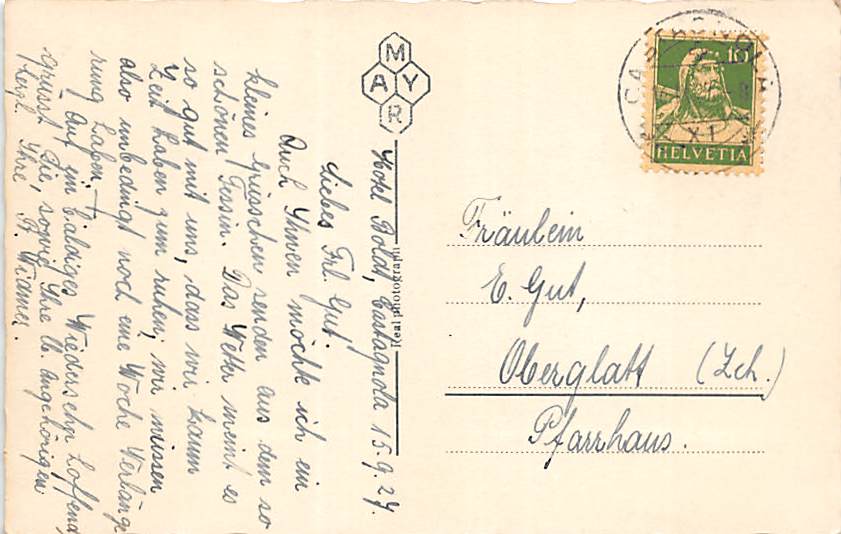 Hotel Boldt, Castagnola 15.9.27.
Liebes Frl. Gut!
Auch Ihnen möchte ich ein
kleines Grüsschen senden aus dem so
schönen Tessin. Das Wetter meint es
so gut mit uns, dass wir kaum
Zeit haben zum ruhen; wir müssen
also unbedingt noch eine Woche Verlänge
rung haben. –
Auf ein baldiges Wiedersehn hoffend
grüsst Sie, sowie Ihre lb. Angehörigen
herzl. Ihre B. Widmer.
MAYR
Real Photograph
CASTAGNOLA
10
HELVETIA
Fräulein
E. Gut,
Oberglatt (Zch.)
Pfarrhaus.